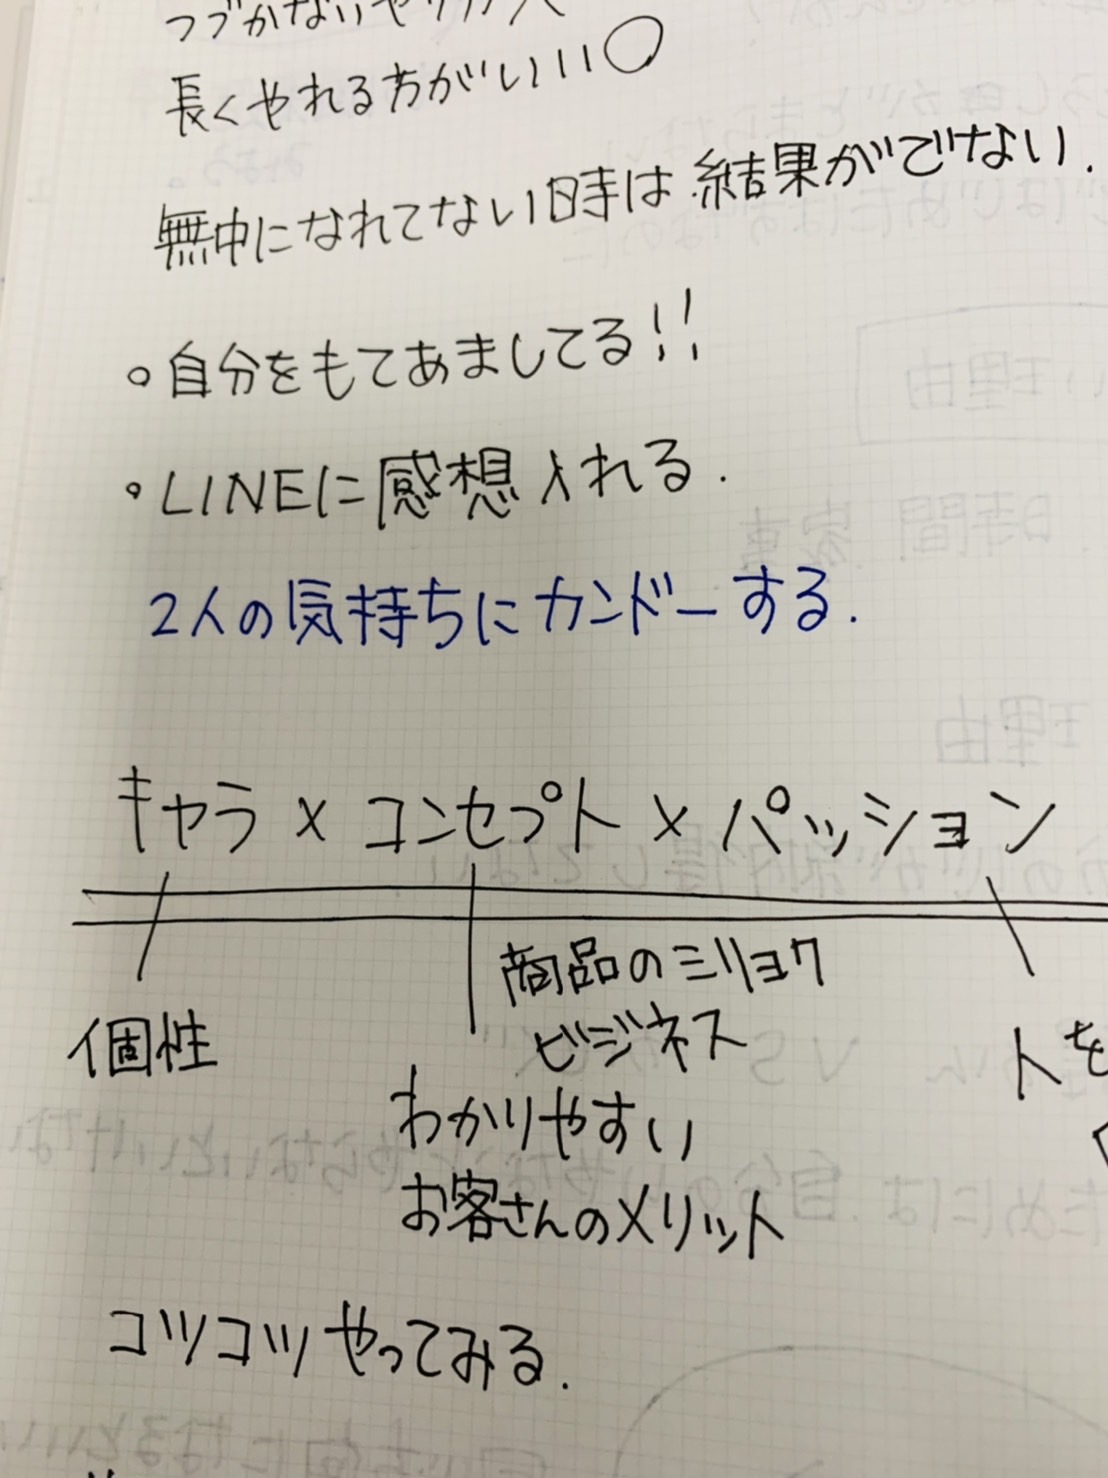 つづかないやり方
長くやれる方がいい〇
無中になれてない時は結果がでない.
○自分をもてあましてる!!
○LINEに感想入れる.
2人の気持ちにカンドーする.
キャラ×コンセプト×パッション
商品のミリョク
個性
ビジネス
人を
わかりやすい
お客さんのメリット
コツコツやってみる.